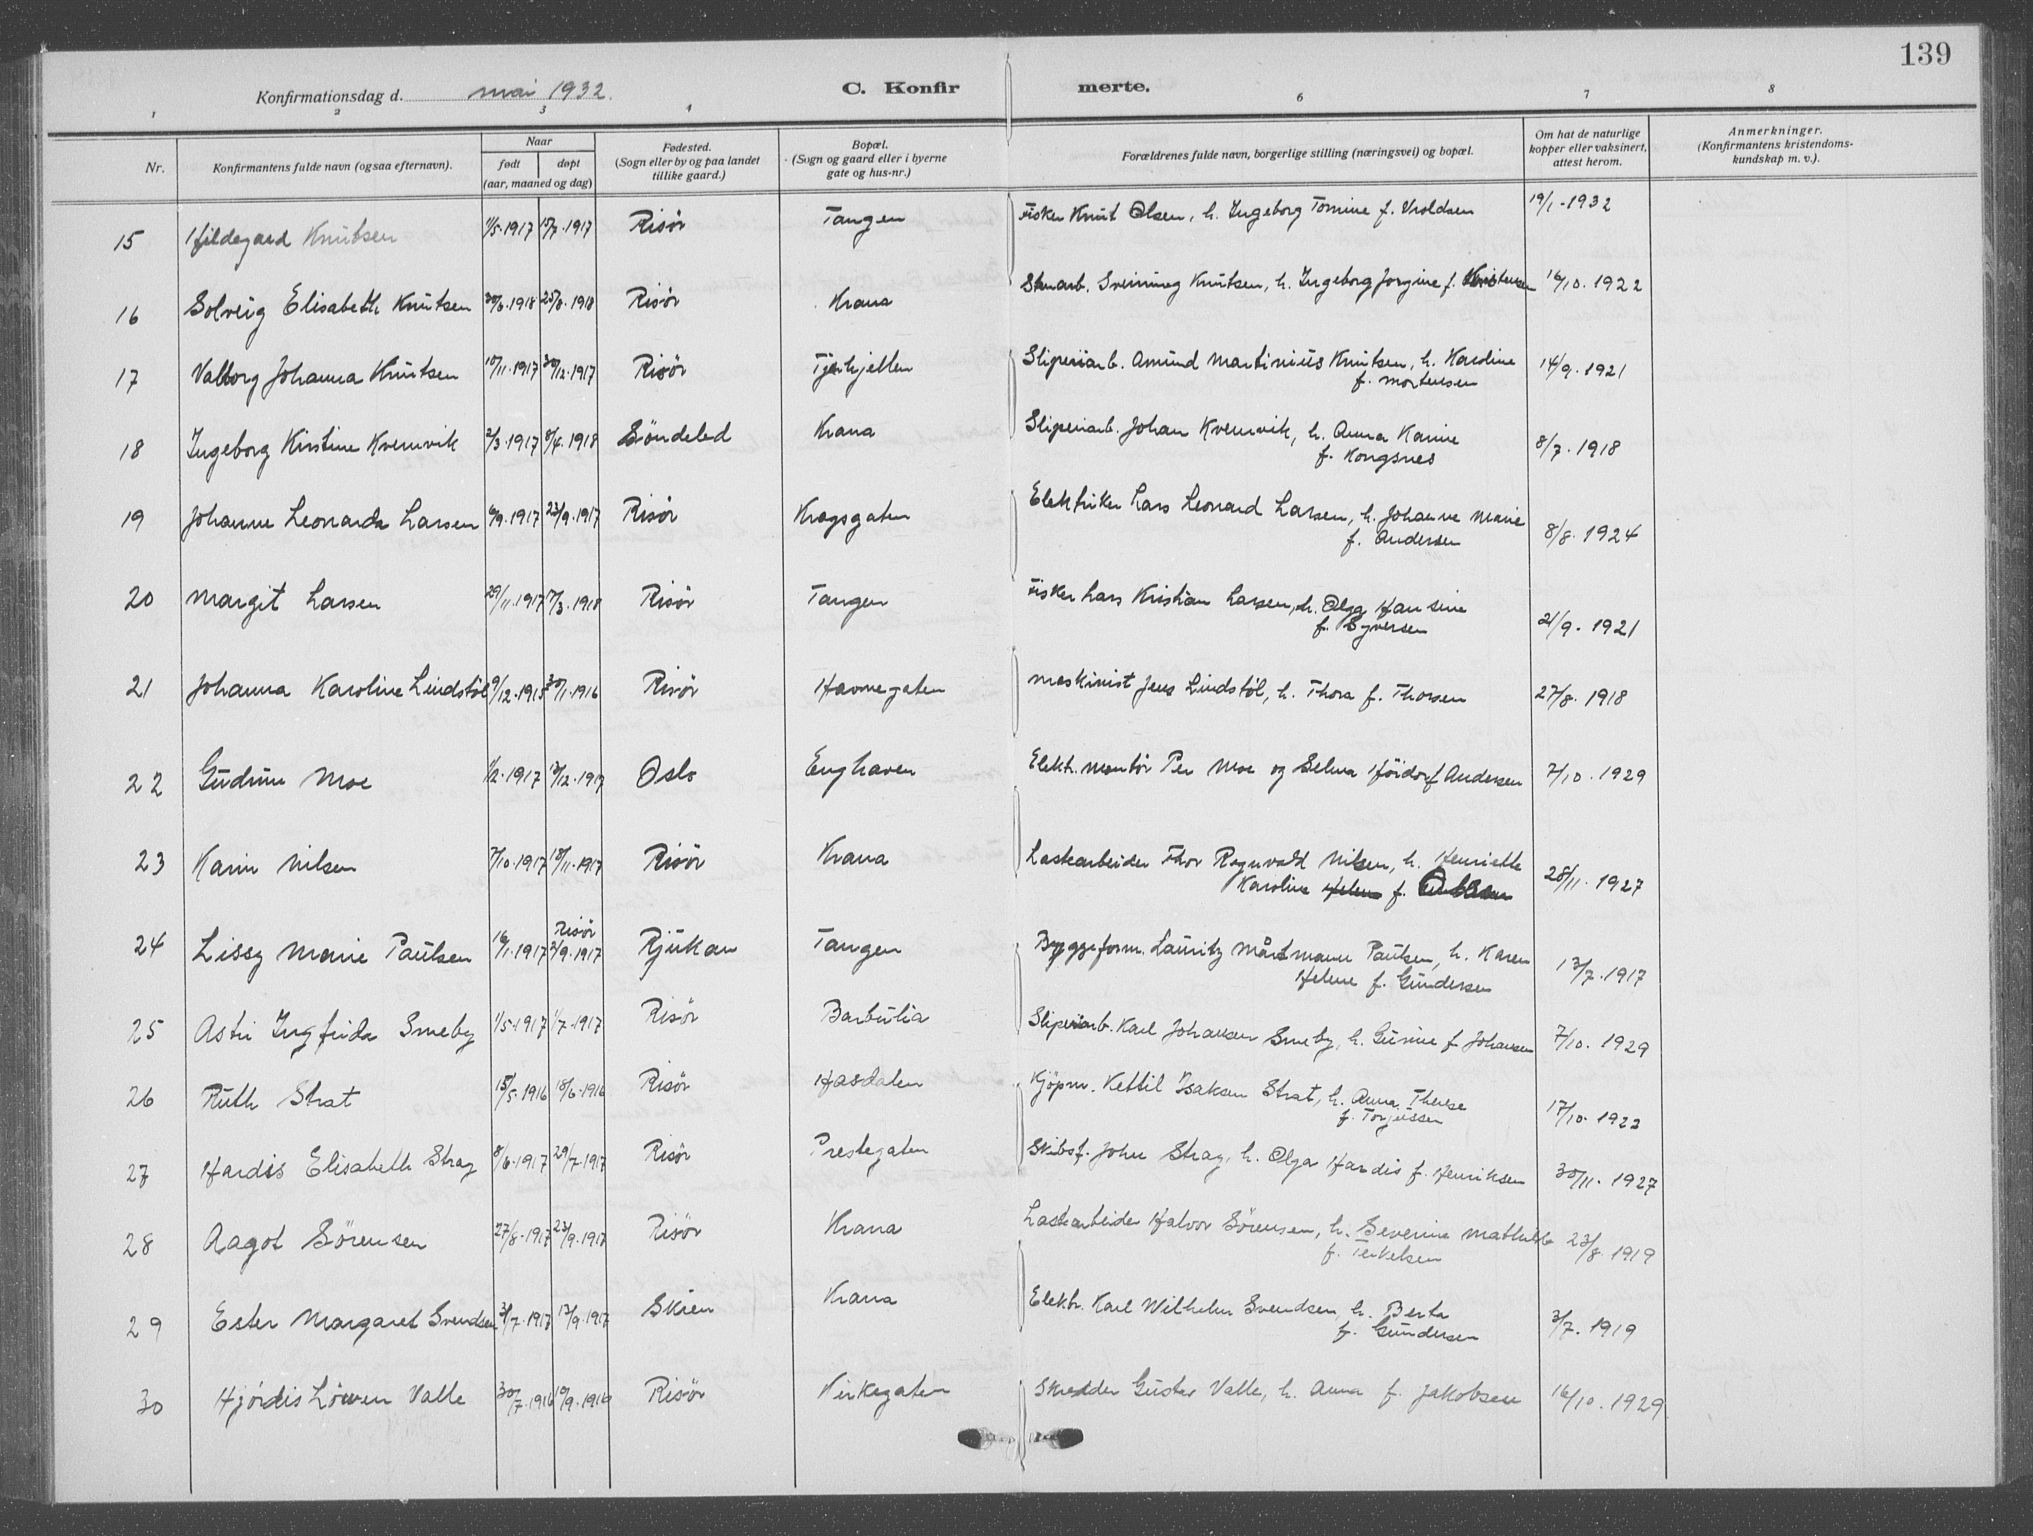 139
Konfirmationsdag d. mai 1932.
C. Konfirmerte.
1 2 3 4 6 7 8
Nr.
Konfirmantens fulde navn (ogsaa efternavn).
Naar
født døpt
(aar, maaned og dag)
Fødested.
(Sogn eller by og paa landet
tillike gaard.)
Bopæl.
(Sogn og gaard eller i byerne
gate og hus-nr.)
Forældrenes fulde navn, borgerlige stilling (næringsvei) og bopæl.
Om hat de naturlige
kopper eller vaksinert,
attest herom.
Anmerkninger.
(Konfirmantens kristendoms-
kundskap m. v.).
15 Hildegard Knutsen 1/5-1917 15/7-1917 Risör Tangen Fisker Knut Olsen, h. Ingeborg Tomine f. Vroldsen 19/1-1932
16 Solveig Elisabeth Knutsen 30/6-1918 25/8-1918 Risör Krana Svinning Knutsen, h. Ingeborg Jorgine f. 16/10. 1922
17 Valborg Johanna Knutsen 10/11-1917 30/12-1917 Risör Sliperiarb. Amund Martinius Knutsen, h. Karoline 14/9. 1921
f. Mortensen
18 Ingeborg Kirstine Kvernvik 2/3-1917 8/4-1918 Söndeled Krana Sliperiarb. Johan Kvernvik, h. Anna Karine 8/7. 1918
f. Kongsnes
19 Johanne Leonarda Larsen 6/9-1917 23/9-1917 Risör Kragsgaten Elektriker Lars Leonard Larsen, h. Johanne Marie 8/8. 1924
f. Andersen
20 Margit Larsen 29/11-1917 17/3-1918 Risör Tangen Fisker Lars Kristian Larsen, h. Olga Hansine 21/9. 1921
f. Syversen
21 Johanna Karoline Lindstöl 9/12-1915 30/1-1916 Risör Havnegaten Maskinist Jens Lindstöl, h. Thora f. Thorsen 27/8. 1918
22 Gudrun Moe 1/2-1917 13/12-1917 Oslo Enghaven Elekt. montör Per Moe og Selma f. Andersen 7/10. 1929
23 Karin Nilsen 7/10-1917 18/11-1917 Risör Krana Lastearbeider Thor Ragnvald Nilsen, h. Henriette 28/11. 1927
Karoline Helene f.
24 Lissy Marie Paulsen 16/1-1917 Risör 2/9-1917 Rjukan Tangen Byggeform. Lauritz Mårtmann Paulsen, h. Karen 13/7. 1917
Helene f. Gundersen
25 Astri Ingfrida Smeby 1/5-1917 1/7-1917 Risör Barbulia Sliperiarb. Karl Johansen Smeby, h. Gunine f. Johansen 7/10. 1929
26 Ruth Strat 15/5-1916 18/6-1916 Risör Hasdalen Kjöpm. Kettil Isaksen Strat, h. Anna Therese 17/10. 1922
f. Torjussen
27 Hardis Elisabeth Stray 8/6-1917 29/7-1917 Risör Prestegaten Skibsf. John Stray, h. Olga Hardis f. Henriksen 30/11. 1927
28 Aagot Sörensen 27/8-1917 23/9-1917 Risör Krana Lastearbeider Halvor Sörensen, h. Severine Mathilde 23/8. 1919
f. Terkelsen
29 Ester Margaret Svendsen 31/7-1917 17/9-1917 Skien Krana Elektr. Karl Wilhelm Svendsen, h. Berta 3/7. 1919
f. Gundersen
30 Hjördis Löwen Valle 30/7-1916 10/9-1916 Risör Kirkegaten Skredder Gustav Valle, h. Anna f. Jakobsen 16/10. 1929